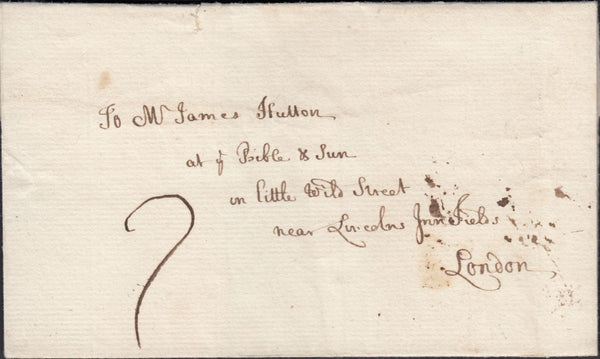 To Mr James Hutton
at ye Bible & Sun
in little Wild Street
near Lincolns Inn Fields
London